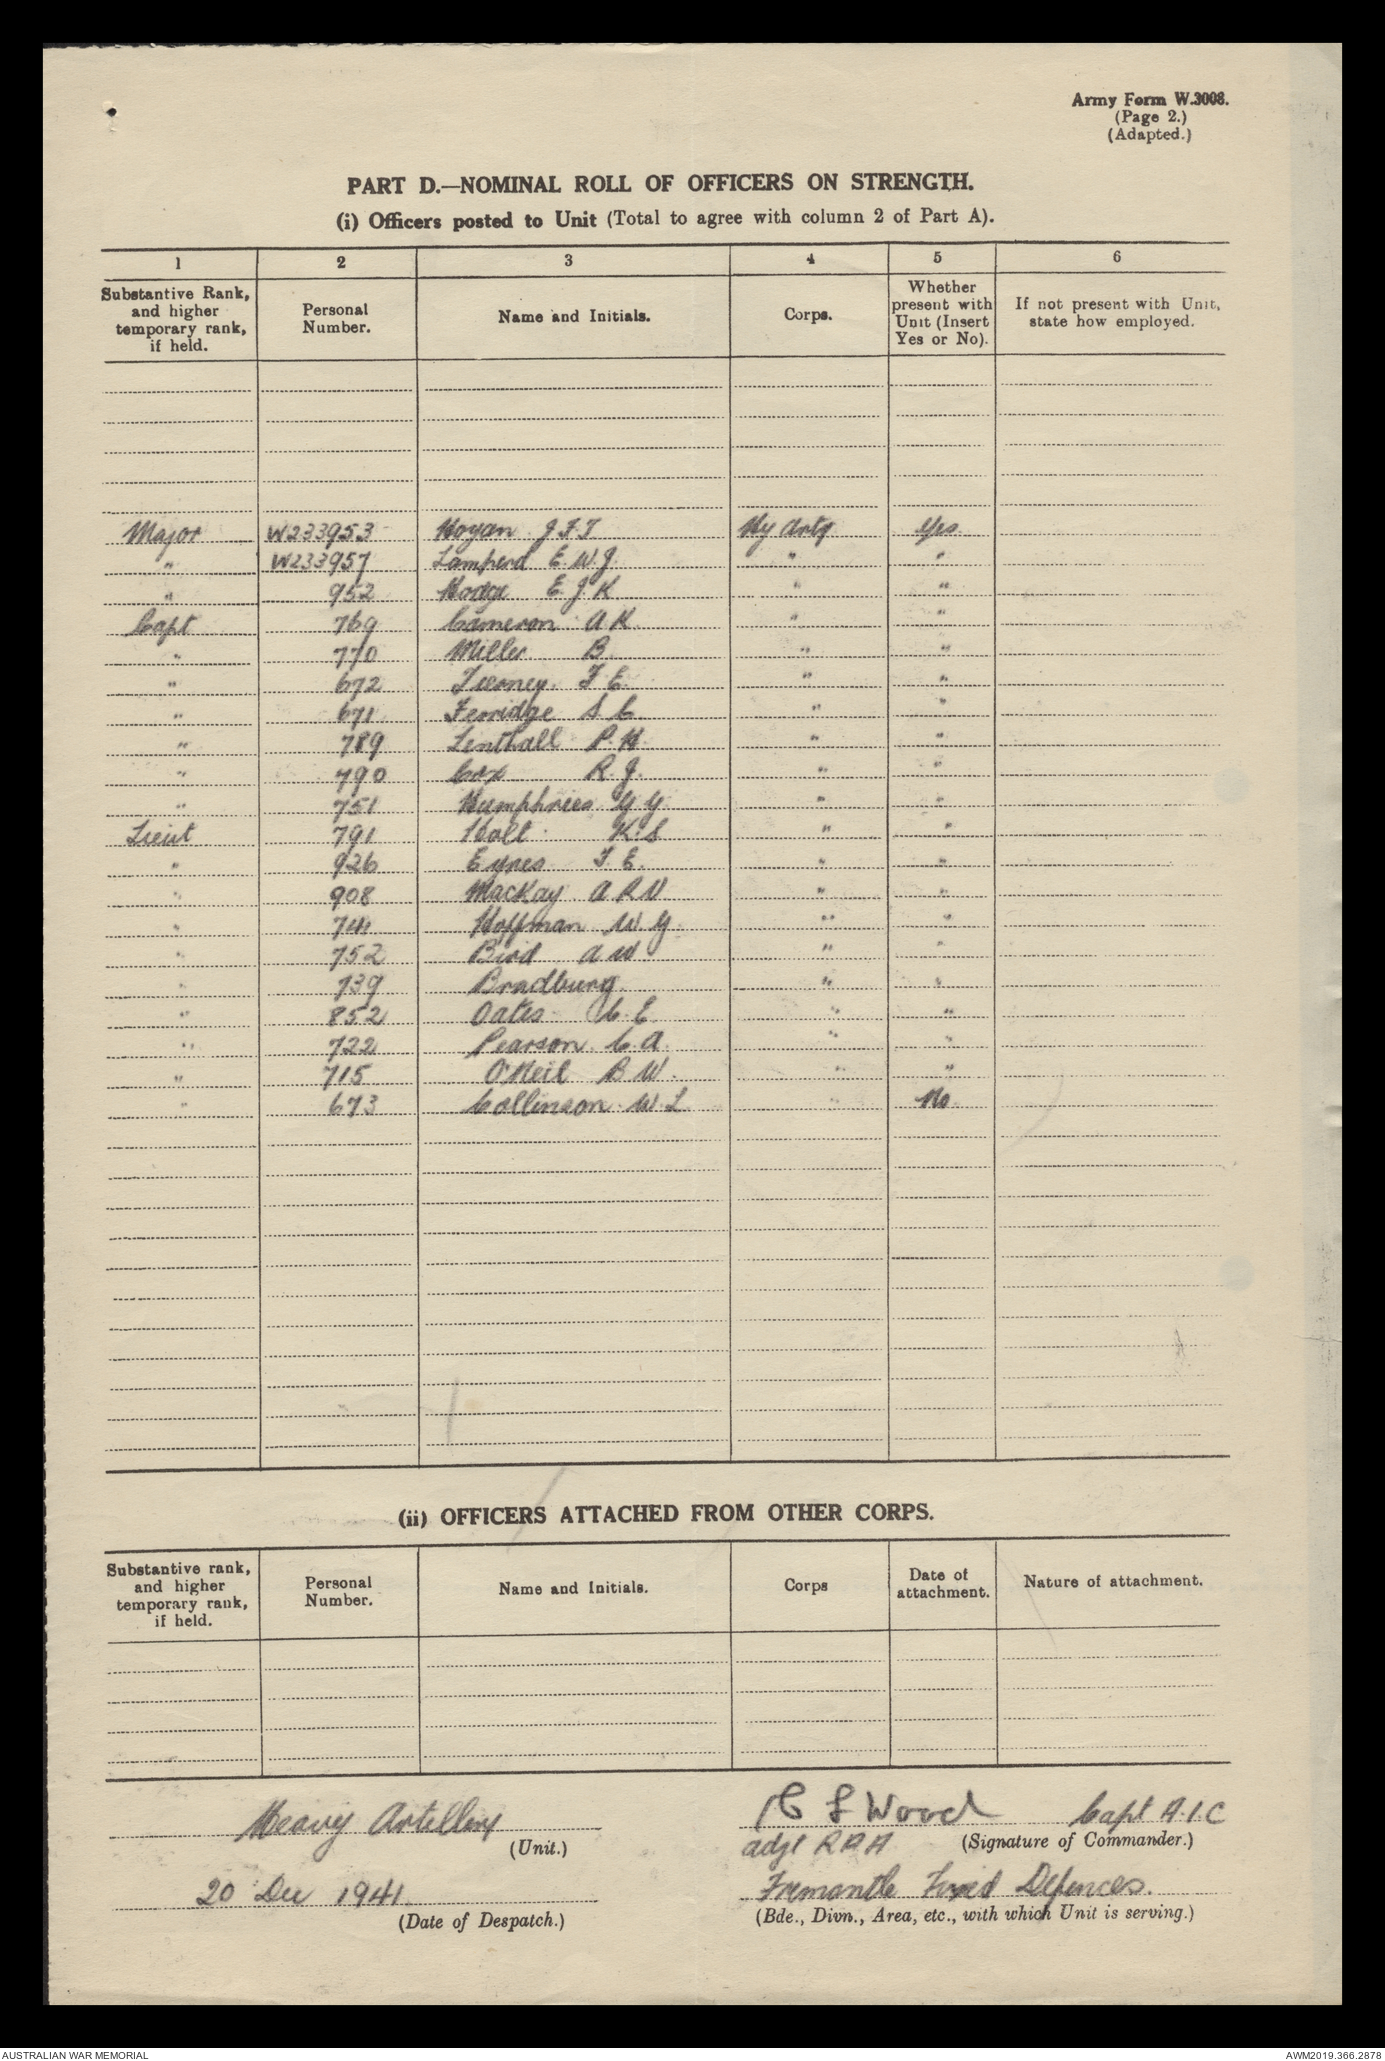 Army Form W.3008.
(Page 2.)
(Adapted.)
PART D.—NOMINAL ROLL OF OFFICERS ON STRENGTH.
(i) Officers posted to Unit (Total to agree with column 2 of Part A).
1 2 3 4 5 6
Substantive Rank, and higher temporary rank, if held. Personal Number. Name and Initials. Corps. Whether present with Unit (Insert Yes or No). If not present with Unit, state how employed.
Major W233953 Hogan J.F.T Hy Arty Yes
" W233957 Lamperd E.W.J. " "
" 952 Hodge E J K " "
Capt 769 Cameron A K " "
" 770 Miller B " "
" 672 Tierney F E " "
" 671 Ferridge S C " "
" 789 Lenthall P.H. " "
" 790 Cox R.J. " "
" 751 Humphries G G " "
Lieut 791 Hall K.S " "
" 926 Eyres F.E. " "
" 908 MacKay A R V " "
" 741 Hoffman W G " "
" 752 Bird A W " "
" 739 Bradbury " "
" 852 Oates C.E " "
" 722 Pearson C.A. " "
" 715 O'Neil B W. " "
" 673 Collinson W.L " No
(ii) OFFICERS ATTACHED FROM OTHER CORPS.
Substantive rank, and higher temporary rank, if held. Personal Number. Name and Initials. Corps Date of attachment. Nature of attachment.
Heavy Artillery C L Wood Capt A.I.C
(Unit.) adjt RAA (Signature of Commander.)
20 Dec 1941 Fremantle Fixed Defences.
(Date of Despatch.) (Bde., Divn., Area, etc., with which Unit is serving.)
AUSTRALIAN WAR MEMORIAL AWM2019.366.2878